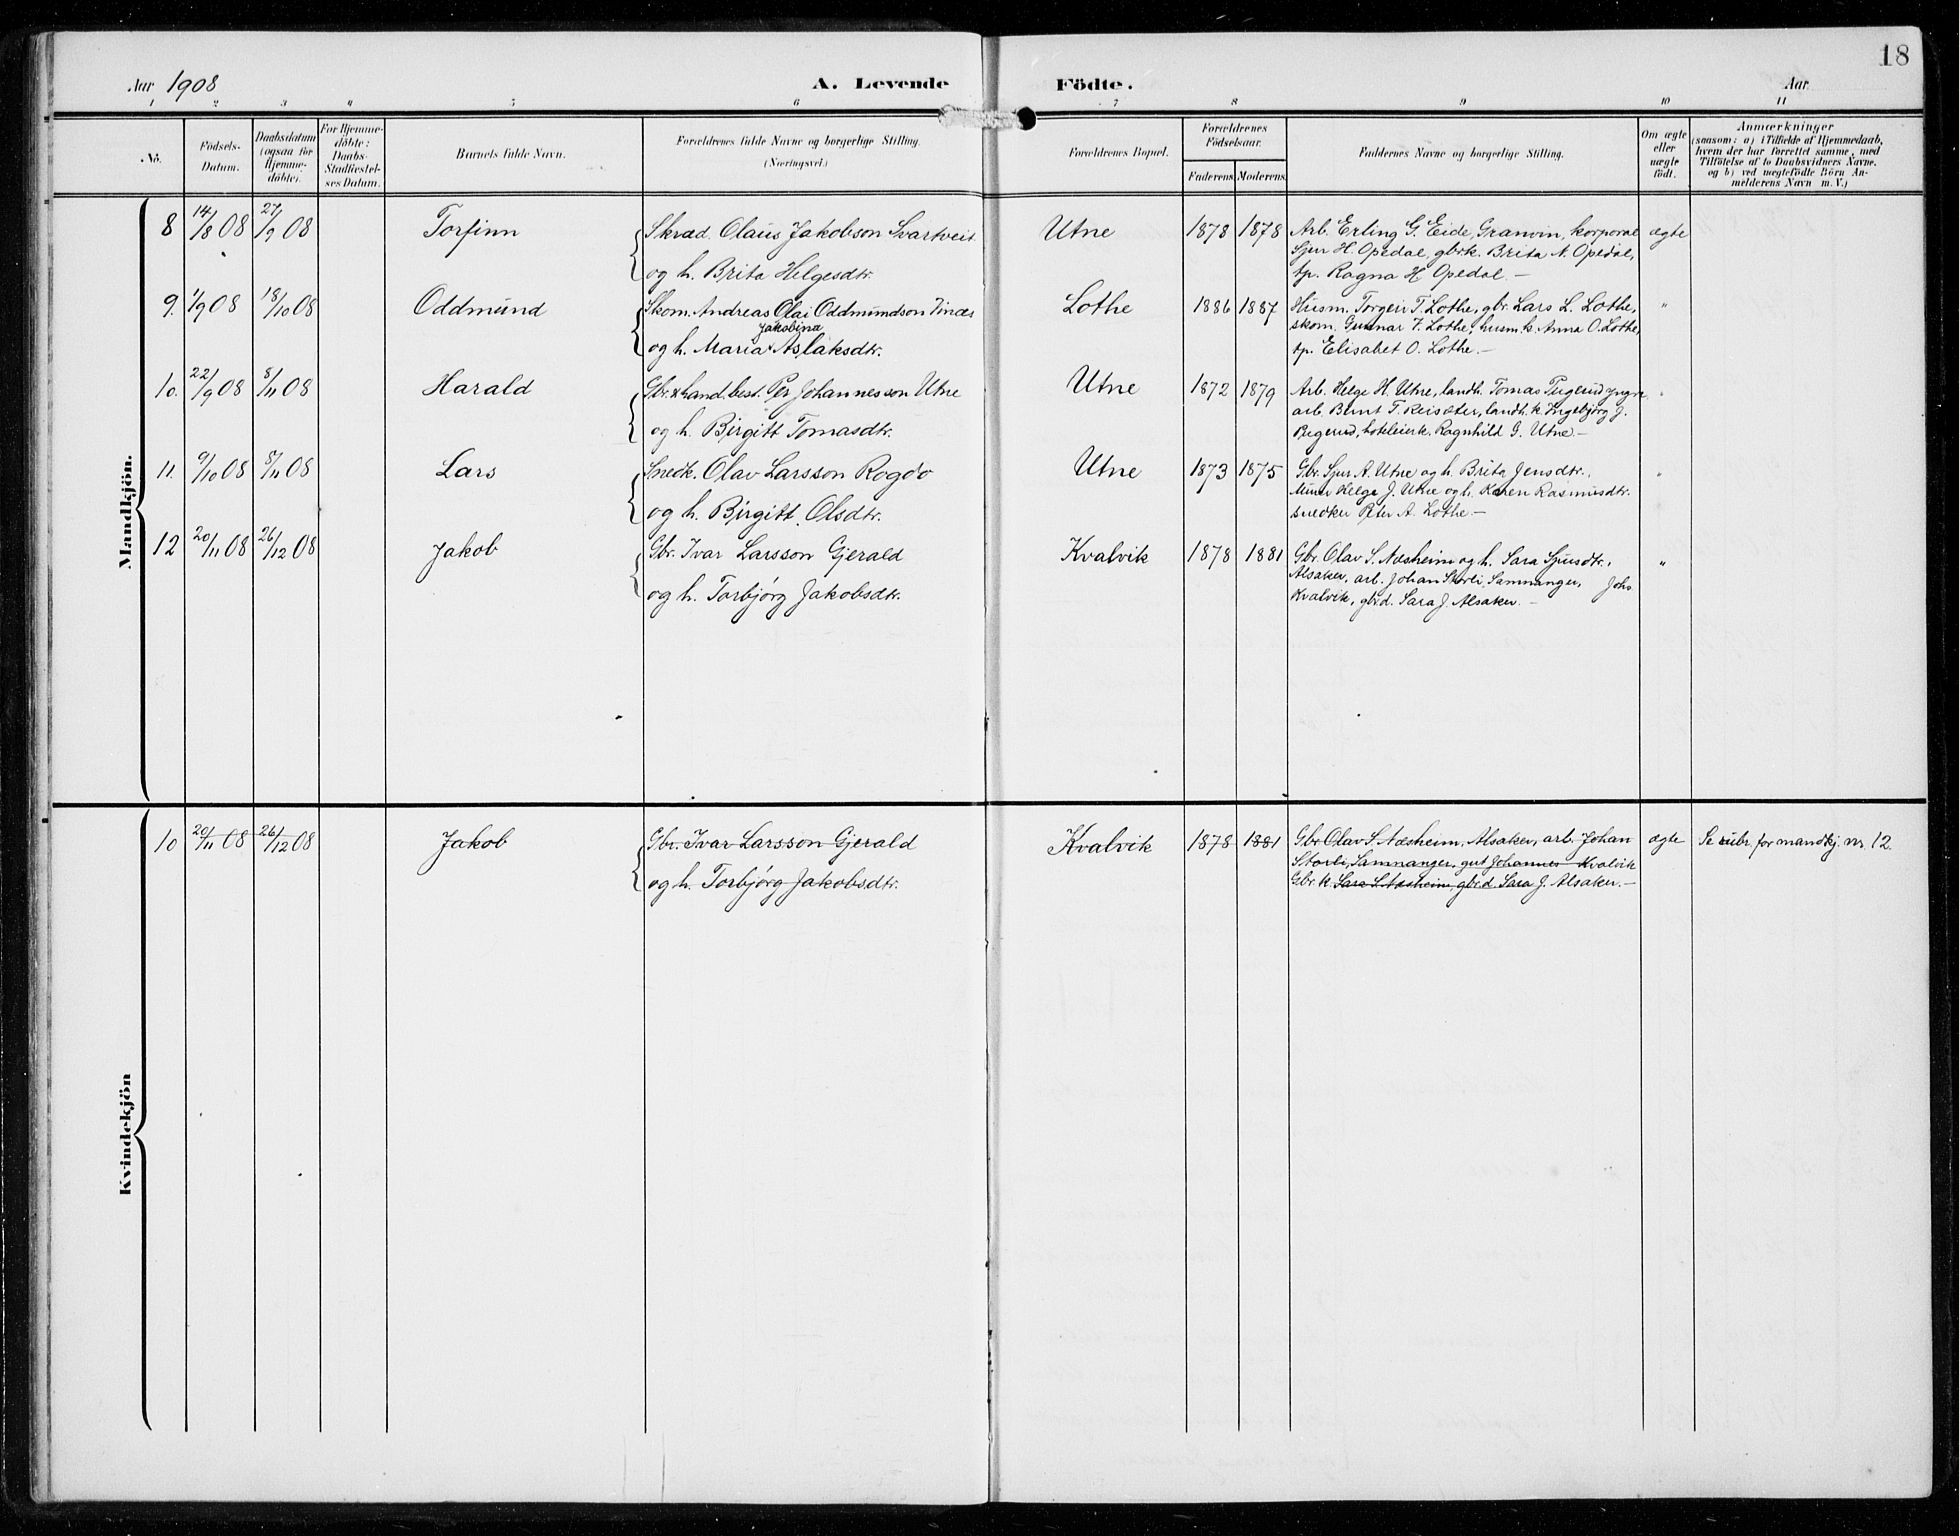 18
Aar 1908 A. Levende Födte. Aar
1 2 3 4 5 6 7 8 9 10 11
No. Födsels-Datum. Daabsdatum (ogsaa for Hjemme-döbte). For Hjemme-döbte: Daabs-Stadfæstel-ses Datum. Barnets fulde Navn. Forældrenes fulde Navne og borgerlige Stilling. (Næringsvei.) Forældrenes Bopæl. Forældrenes Födselsaar. Faderens Moderens Faddernes Navne og borgerlige Stilling. Om ægte eller uægte födt. Anmærkninger (saasom: a) i Tilfælde af Hjemmedaab, hvem der har forrettet samme, med Tilföielse af to Daabsvidners Navne. og b) ved uægtefödte Börn An-melderens Navn m. V.)
Mandkjön.
8 14/8 08 27/9 08 Torfinn Skræd. Olaus Jakobson Svartveit Utne 1878 1878 Arb. Erling G. Eide, Granvin, korporal ægte
Sjur H. Opedal, gbrk. Brita N. Opedal,
og h. Brita Helgesdtr. tp. Ragna H. Opedal. —
9. 1/9 08 18/10 08 Oddmund Skom. Andreas Olai Oddmundson Vinæs Lothe 1886 1887 Husm. Torgeir T. Lothe, gbr. Lars L. Lothe, "
Jakobina skom. Gunnar T. Lothe, husm.k. Anna O. Lothe,
og h. Maria Aslaksdtr. tp. Elisabet O. Lothe. —
10. 22/9 08 8/11 08 Harald Gbr. & hand.best. Per Johannesson Utne Utne 1872 1879 Arb. Helge H. Utne, landh. Tomas "
arb. Bernt T. Reisæter, landh.k. Ingebjørg J.
og h. Birgitt Tomasdtr. hoteleierk. Ragnhild G. Utne —
11. 9/10 08 8/11 08 Lars Snedk. Olav Larsson Rogdo Utne 1873 1875 Gbr. Sjur A. Utne og h. Brita Jensdtr., "
Murer Helge J. Utne og h. Karen Rasmusdtr.
og h. Birgitt Olsdtr. snedker Peter A. Lothe —
12 20/11 08 26/12 08 Jakob Gbr. Ivar Larsson Gjerald Kvalvik 1878 1881 Gbr. Olav S. Næsheim og h. Sara Sjursdtr., "
Alsaker, arb. Johan Storli, Samnanger, Johs
og h. Torbjørg Jakobsdtr. Kvalvik, gbrd. Sara J. Alsaker. —
Kvindekjön
10 20/11 08 26/12 08 Jakob Gbr. Ivar Larsson Gjerald Kvalvik 1878 1881 Gbr. Olav S. Næsheim, Alsaker, arb. Johan ægte Se rubr. for mandkj. nr. 12.
Storli, Samnanger, gut Johannes Kvalvik
og h. Torbjørg Jakobsdtr. Gbr. k. Sara S. Næsheim, gbrd. Sara J. Alsaker. —